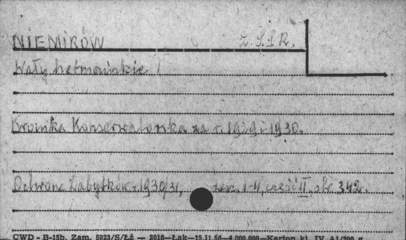 NIEMIRÓW Z.S.R.R.
Wały hetmańskie
Kronika Konserwatorska za r. 1929 i 1930.
Ochrona Zabytków r. 1930/31, zesz. 1-4, część II, str. 342.
CWD - B-15b. Zam. 5823/S/Łź — 2016—Łsk—15.11.54—4.000.000—Karton kl. IV A1/200 g